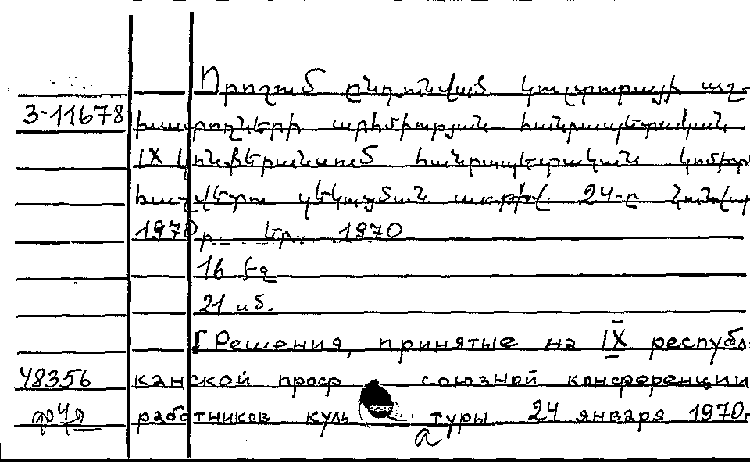 Որոշում ընդունված կուլտուրայի աշ-
3-11678 խատողների արհմիության հանրապետական
IX կոնֆերանսում հանրապետական կոմիտ
հաշվետու զեկուցման 24-ը հունվար
1970 թ. Եր. 1970
16 էջ
21 սմ.
[Решения, принятые на IX республ
48356 канской проф союзной конференции
работников куль туры 24 января 1970г
а